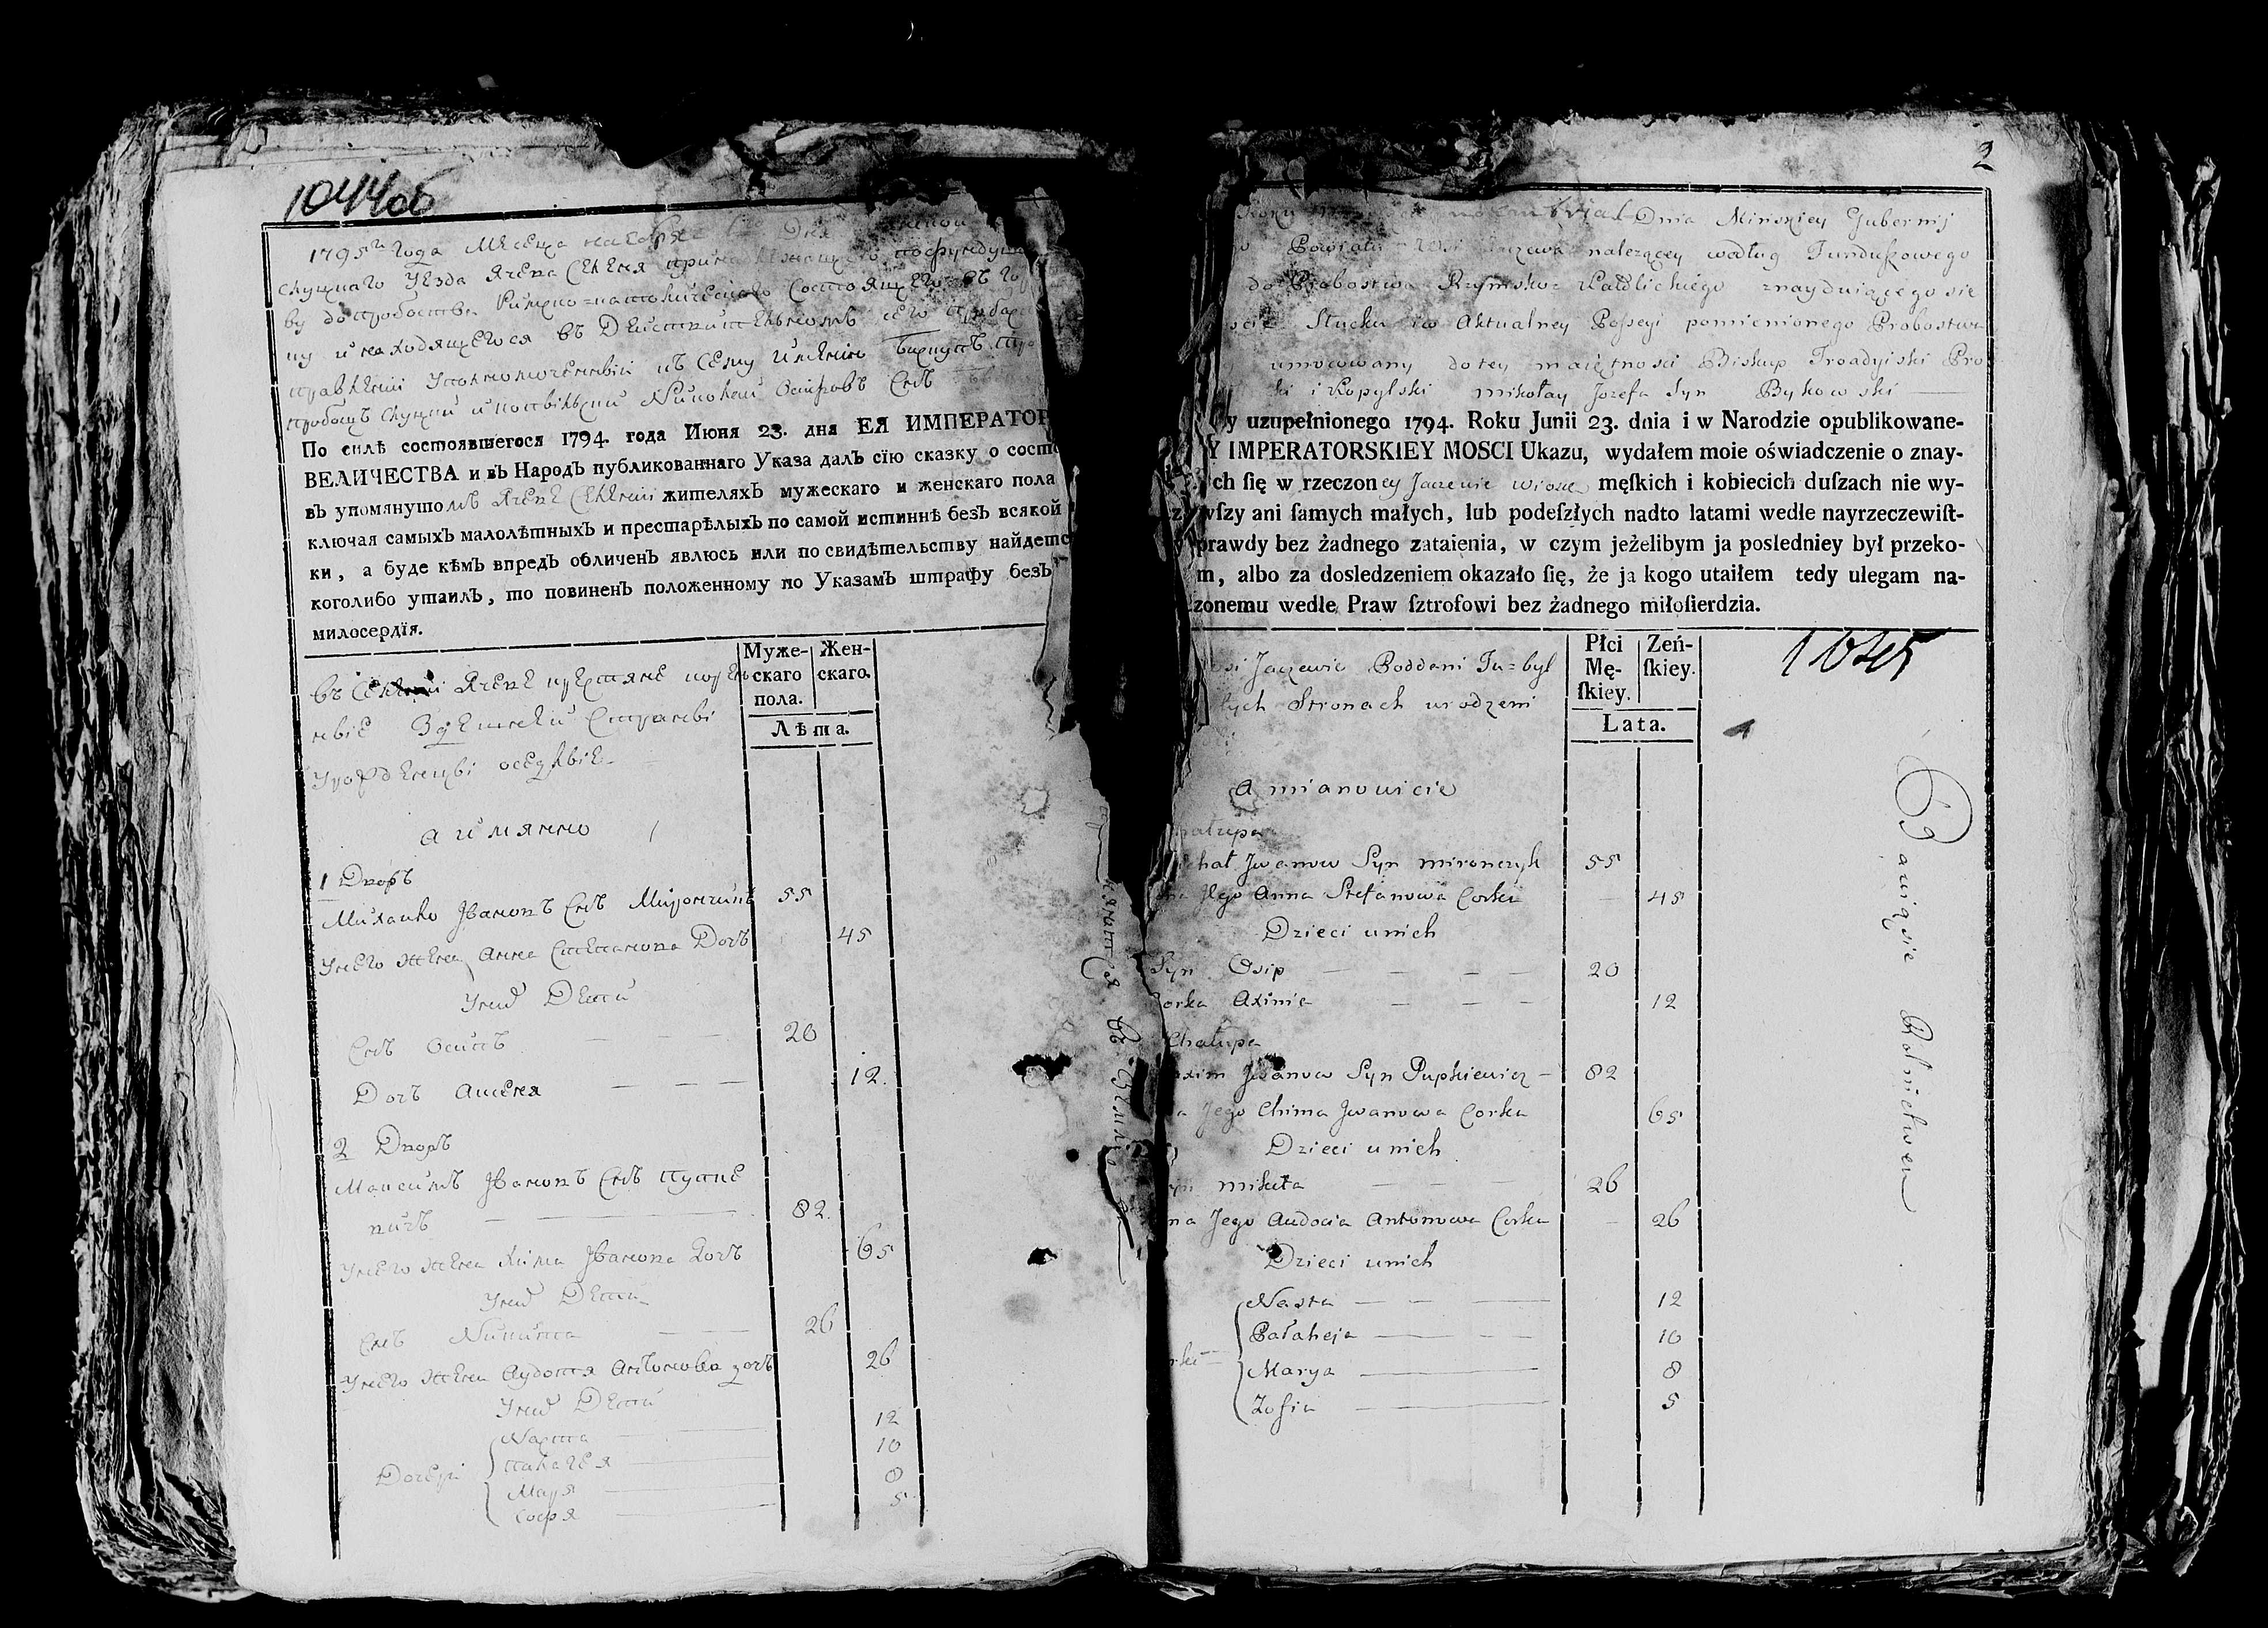 1044об
1795го года Месеца Ноября Дня
Слуцкаго Уезда Ячева Селеня принадлежащего по фундушо
ву до пробоства Римско=католическаго Состоящего въ го
цку и находящегося въ Действительномъ его
правлении Уполномоченный къ Сему имению Бискупъ
пробощъ Слуцкий и копыльский Николай Осифовъ Снъ
По силѣ состоявшегося 1794. года Июня 23. дня ЕЯ ИМПЕРАТОР
ВЕЛИЧЕСТВА и въ Народъ публикованнаго Указа далъ сїю сказку о состо
въ упомянутомъ Ячеве Селении жителяхъ мужескаго и женскаго пола
ключая самыхъ малолѣтныхъ и престарѣлыхъ по самой истиннѣ безъ всякой
ки, а буде кѣмъ впредь обличенъ явлюсь или по свидѣтельству найдетс
коголибо утаилъ, то повиненъ положенному по Указамъ штрафу безъ
милосердїя.
Муже-
скаго
пола.
Жен-
скаго.
Лѣта.
въ Селении Ячеве крестяне корен
ные Здешней Страны
Урожденцы оседлые
а имянно
1 Дворъ
Михайло Ивановъ Снъ Мирончикъ 55
У него жена Анна Степанова Дочъ 45
У них Дети
Снъ Осипъ — — — 20
Дочъ Аксеня — — — 12.
2 Дворъ
Максимъ Ивановъ Снъ Пупке
вичъ — 82.
У него жена Хима Иванова Дочъ 65
У них Дети
Снъ Никита — — 26
У него жена Аудотя Антонова дочъ 26
У них Дети
Настя 12
Дочери Палагея 10
Маря 8
Софя 5
2
Dnia Minskiey Gubernij
Powiatu Wsi Jaczewa nalezącey według Funduszowego
do Probostwa Rzymsko= Katolickiego znayduiącego się
Słucku w Aktualney Possesyi pomienionego Probostwa
umocowany do tey maiętnosci Biskup Troadyiski Pro
ki i Kopylski mikołay Jozefa Syn Bykowski
y uzupełnionego 1794. Roku Junii 23. dnia i w Narodzie opublikowane-
Y IMPERATORSKIEY MOSCI Ukazu, wydałem moie oświadczenie o znay-
ch ſię w rzeczoney Jaczewie wiosce męſkich i kobiecich duſzach nie wy-
wſzy ani ſamych małych, lub podeſzłych nadto latami wedle nayrzeczewiſt-
prawdy bez żadnego zataienia, w czym jeżelibym ja posledniey był przeko-
m, albo za dosledzeniem okazało ſię, że ja kogo utaiłem tedy ulegam na-
zonemu wedle Praw ſztrofowi bez żadnego miłoſierdzia.
Płci
Mę-
ſkiey.
Zeń-
ſkiey.
Lata.
si Jaczewie Poddani Tu=byl
tych Stronach urodzeni
a mianowicie
hałupa
chał Jwanow Syn mironczyk 55
na Jego Anna Stefanowa Corka — 45
Dzieci unich
Syn Osip — — — — 20
Corka Axinia — — — 12
Chałupa
axim Jwanow Syn Pupkiewicz — 82
a Jego Chima Jwanowa Corka 65
Dzieci unich
yn mikita — — — 26
na Jego Audocia Antonowa Corka — 26
Dzieci unich
Nasta — — — 12
Pałaheja — — — 10
rki Marya — 8
Zofia — 5
Bawią sie Rolnictwem